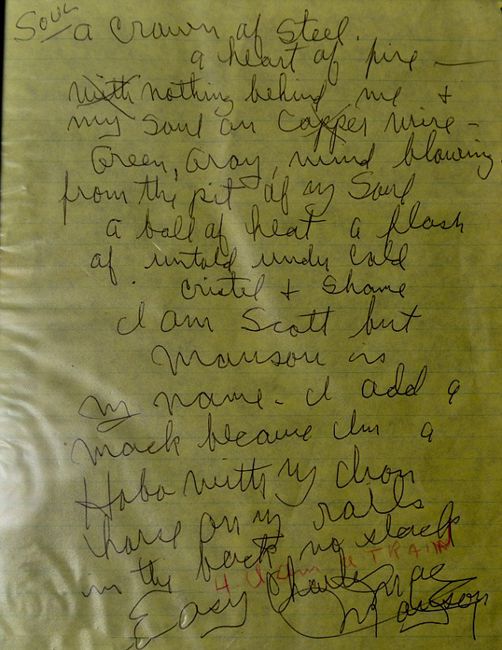 Soul
a crown of steel.
a heart of fire —
With nothing behind me +
my soul on Copper wire -
Green, Gray, mind blowing
from the pit of my Soul
a ball of heat a flash
of untold under cold
cristel + Shame
I am Scott but
Manson is
my name - I add a
mack because Im a
Hobo with my Iron
horse on my rails
in the back no slack
4 a TRAIN
Easy Charles Mac
Manson